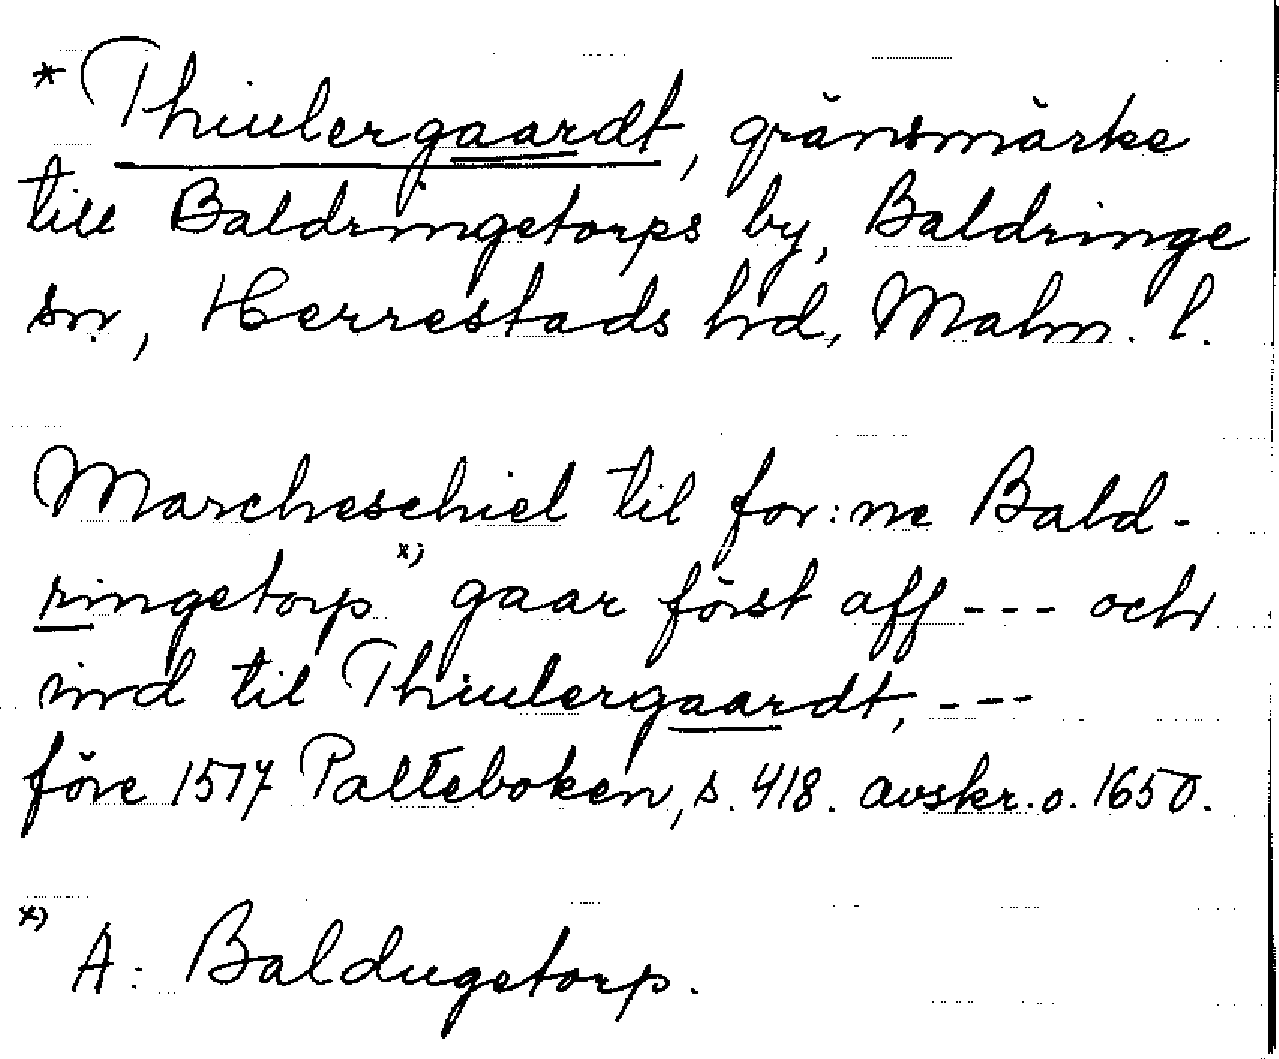 * Thiulergaardt, gränsmärke
till Baldringetorps by, Baldringe
sn, Herrestads hd, Malm. l.
Marcheschiel til for:ne Bald-
ringetorp x) gaar först aff --- och
ind til Thiulergaardt, ---
före 1517 Palteboken, s. 418. avskr. o. 1650.
x) A: Baldugetorp.